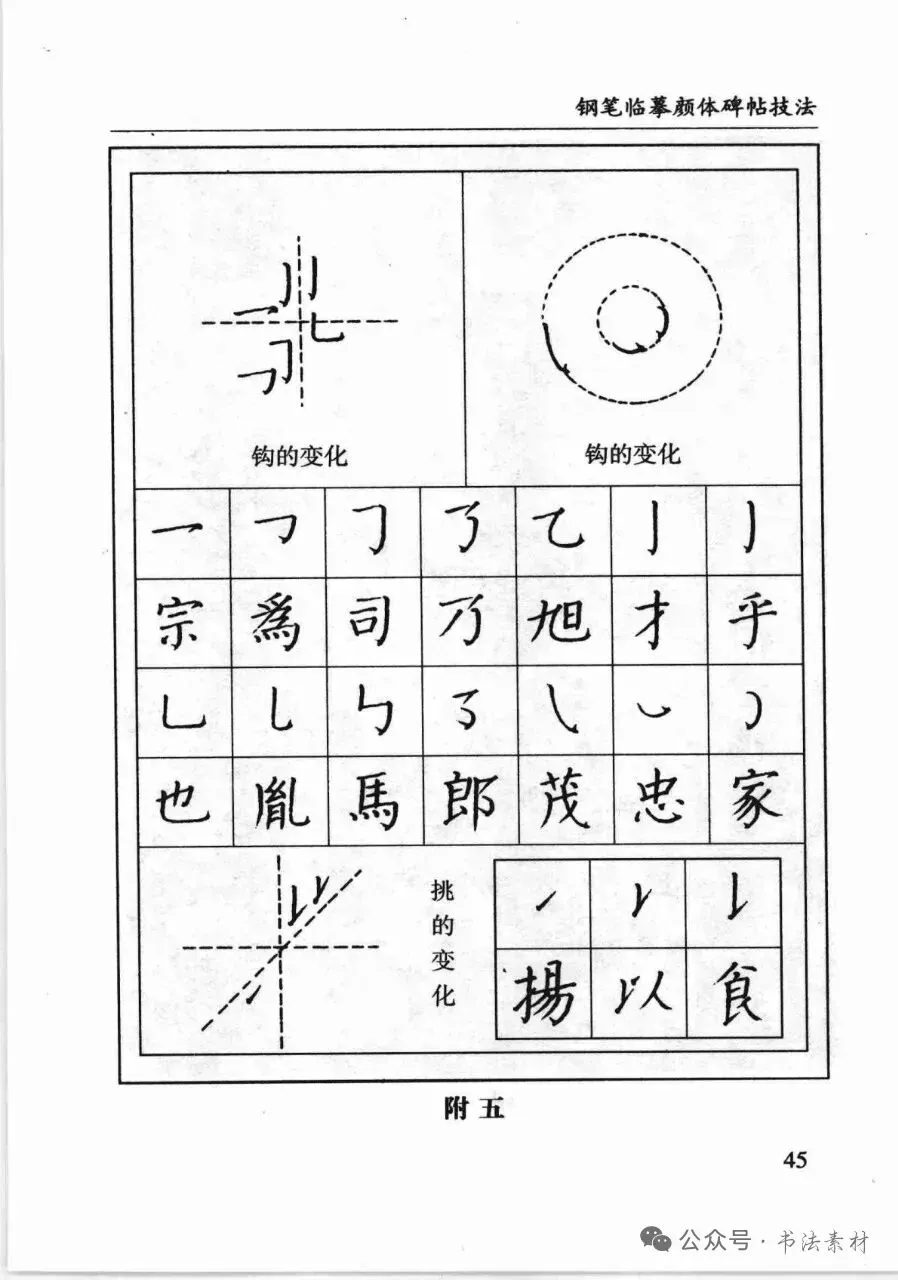 钢笔临摹颜体碑帖技法
钩的变化
钩的变化
宗 爲 司 乃 旭 才 乎
也 胤 馬 郎 茂 忠 家
挑的变化
揚 以 食
附五
45
公众号·书法素材